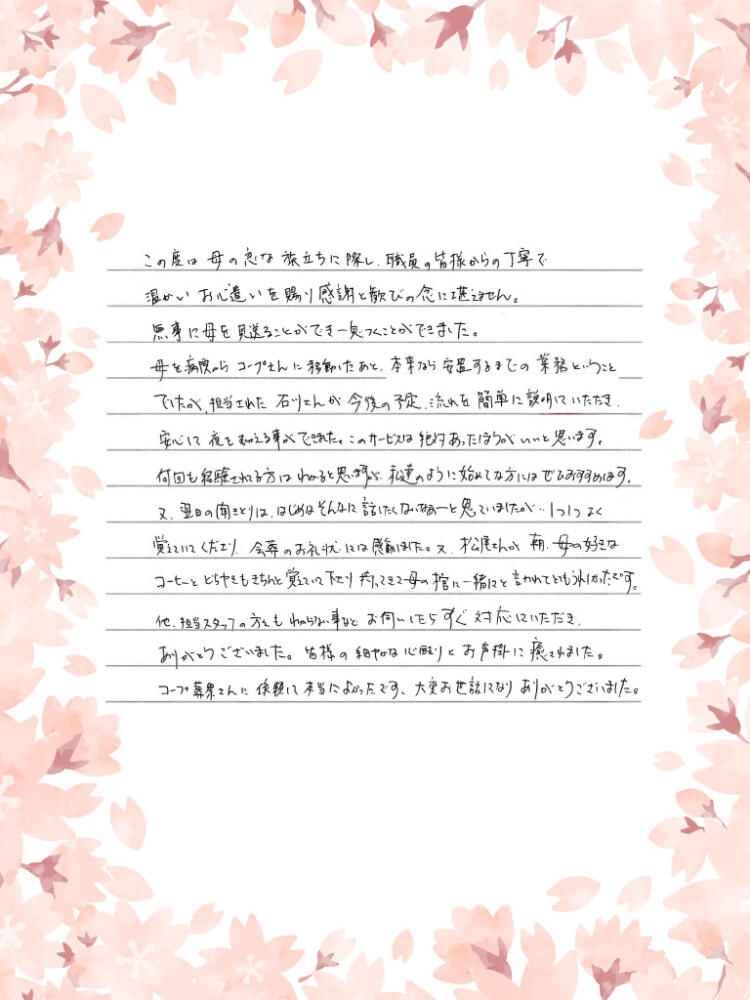 この度は 母の急な 旅立ちに際し、職員の皆様からの丁寧で
温かい お心遣いを賜り感謝と歓びの念に堪えません。
無事に母を見送ることができ一息つくことができました。
母を病院から コープさんに移動したあと、本来なら 安置するまでの 業務ということ
でしたが、担当された 石川さんが 今後の予定、流れを 簡単に説明していただき、
安心して 夜をむかえる事ができました。このサービスは 絶対あったほうがいいと思います。
何回も経験されてる方は わかると思いますが、私達のように始めてな方には ぜひおすすめします。
又、翌日の聞きとりは、はじめはそんなに 話したくないなぁーと思っていましたが‥1つ1つ よく
覚えていてくださり、会葬のお礼状には感動しました。又、松尾さんが 朝、母の好きな
コーヒーと どらやきもきちんと覚えていて下さり 持ってきて母の棺に一緒にと 言われてとてもうれしかったです。
他、担当スタッフの方々も わからない事など お伺いしたら すぐ 対応していただき、
ありがとうございました。皆様の細やかな心配りと お声掛に癒されました。
コープ葬祭さんに 依頼して 本当によかったです、大変お世話になり ありがとうございました。